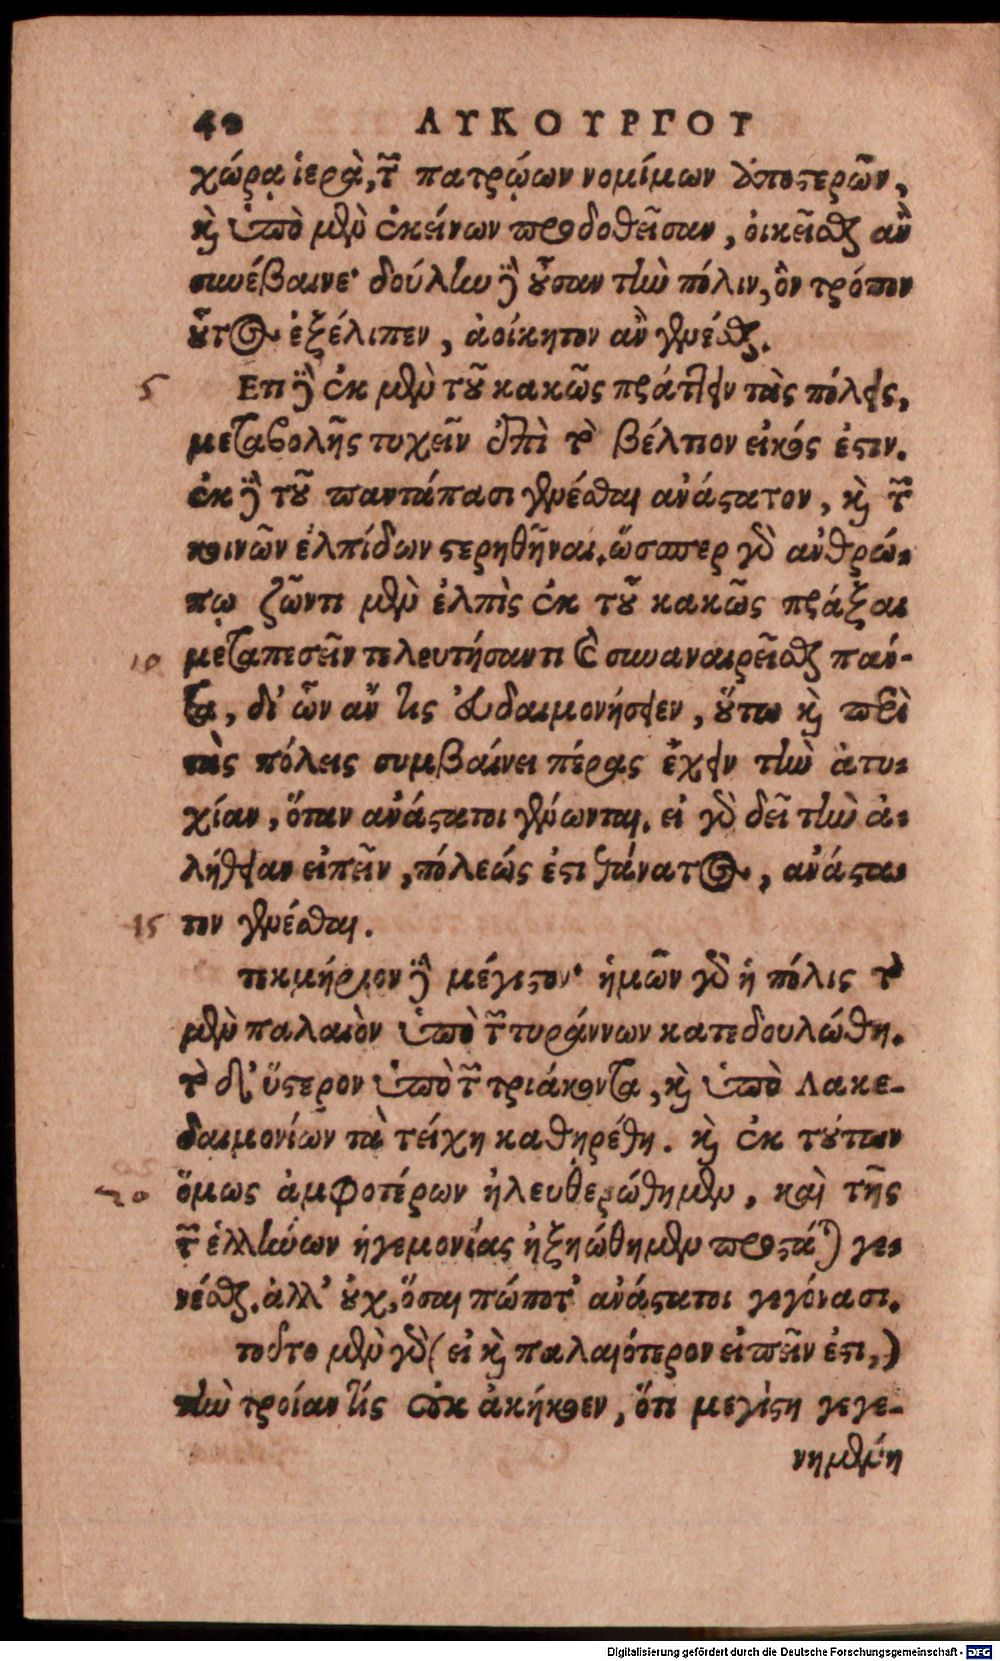 40 ΛΥΚΟΥΡΓΟΥ
χώρᾳ ἱερὰ, τῶν πατρῴων νομίμων ἀποστερῶν,
καὶ ὑπὸ μὲν ἐκείνων προδοθεῖσαν, οἰκεῖσθαι ἂν
συνέβαινε· δούλην δὲ οὖσαν τὴν πόλιν, ὃν τρόπον
οὗτος ἐξέλιπεν, ἀοίκητον ἂν γενέσθαι.
5 Ἔτι δὲ ἐκ μὲν τοῦ κακῶς πράττειν τὰς πόλεις,
μεταβολῆς τυχεῖν ἐπὶ τὸ βέλτιον εἰκός ἐστιν.
ἐκ δὲ τοῦ παντάπασι γενέσθαι ἀνάστατον, καὶ τῶν
κοινῶν ἐλπίδων στερηθῆναι. ὥσπερ γὰρ ἀνθρώ-
πῳ ζῶντι μὲν ἐλπὶς ἐκ τοῦ κακῶς πρᾶξαι
10 μεταπεσεῖν τελευτήσαντι δὲ συναναιρεῖσθαι πάν-
τα, δι' ὧν ἄν τις εὐδαιμονήσειεν, οὕτω καὶ περὶ
τὰς πόλεις συμβαίνει πέρας ἔχειν τὴν ἀτυ-
χίαν, ὅταν ἀνάστατοι γένωνται. εἰ γὰρ δεῖ τὴν ἀ-
λήθειαν εἰπεῖν, πόλεώς ἐστι θάνατος, ἀνάστα-
15 τον γενέσθαι.
τεκμήριον δὲ μέγιστον· ἡμῶν γὰρ ἡ πόλις τὸ
μὲν παλαιὸν ὑπὸ τῶν τυράννων κατεδουλώθη.
τὸ δ' ὕστερον ὑπὸ τῶν τριάκοντα, καὶ ὑπὸ Λακε-
δαιμονίων τὰ τείχη καθῃρέθη. καὶ ἐκ τούτων
20 ὅμως ἀμφοτέρων ἠλευθερώθημεν, καὶ τῆς
τῶν ἑλλήνων ἡγεμονίας ἠξιώθημεν προστάται γε-
νέσθαι. ἀλλ' οὐχ, ὅσαι πώποτ' ἀνάστατοι γεγόνασι.
τοῦτο μὲν γὰρ (εἰ καὶ παλαιότερον εἰπεῖν ἐστι,)
τὴν τροίαν τίς οὐκ ἀκήκοεν, ὅτι μεγίστη γεγε-
νημένη
Digitalisierung gefördert durch die Deutsche Forschungsgemeinschaft - DFG